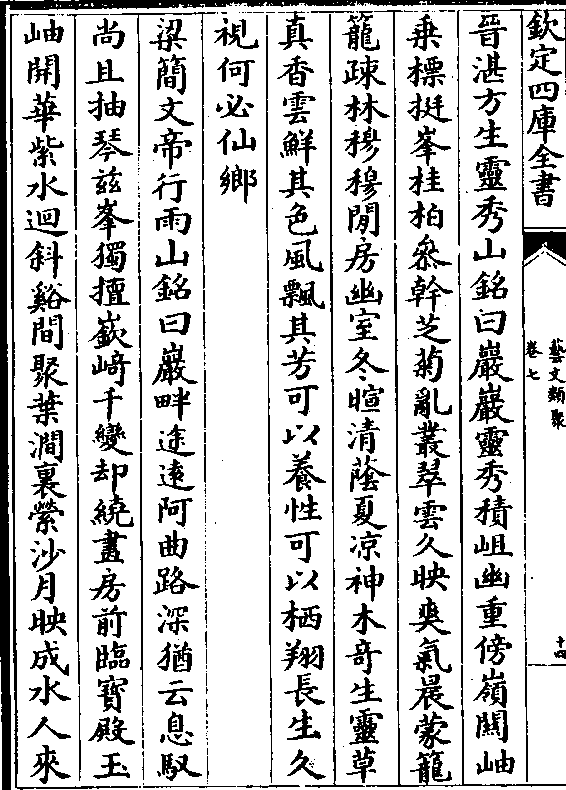 欽定四庫全書
藝文類聚
卷七
十四
晉湛方生靈秀山銘曰巖巖靈秀積岨幽重傍嶺關岫
乗標挺峯桂柏叅幹芝菊亂叢翠雲久映爽氣晨蒙籠
籠疎林穆穆閒房幽室冬暄清蔭夏凉神木竒生靈草
真香雲鮮其色風飄其芳可以養性可以栖翔長生久
視何必仙鄉
梁簡文帝行雨山銘曰巖畔途遠阿曲路深猶云息馭
尚且抽琴兹峯獨擅嶔﨑千變却繞畫房前臨寶殿玉
岫開華紫水迴斜谿間聚葉澗裏縈沙月映成水人來